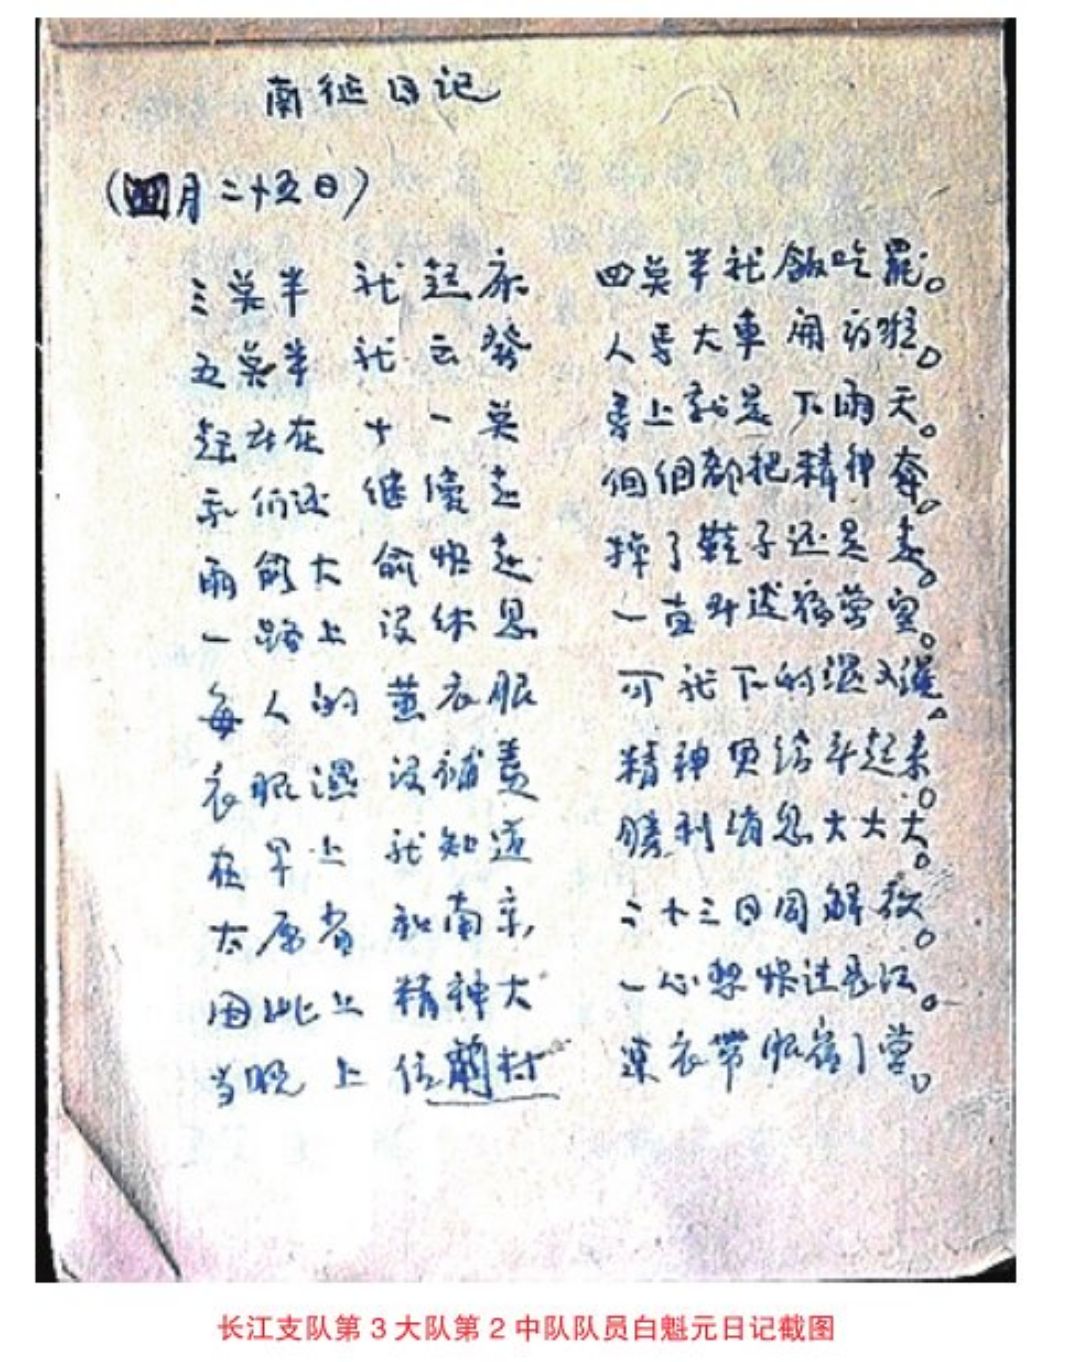 南征日记
(四月二十五日)
三点半 就起床 四点半就饭吃罢。
五点半 就云發 人马大車闹
起牀在 十一点 身上就是下雨天。
示们还 继续走 個個都把精神奋。
雨愈大 愈快走 掉了鞋子还是走。
一路上 没休息 一直到达宿营
每人的 蓝衣服 可 下的湿又湿。
衣服湿 没 精神 给 起来。
在早上 就知道 勝利消息大大大。
太原省 和南京, 二十三日同解放。
因此上 精神大 一心想快过长江。
当晚上 住蘭村 连衣带服宿了营。
长江支队第 3 大队第 2 中队队员白魁元日记截图